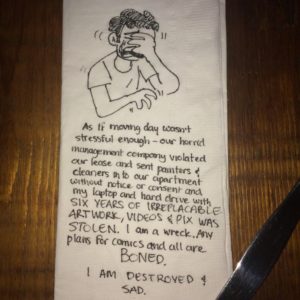 As if moving day wasn't
stressful enough - our horrid
management company violated
our lease and sent painters &
cleaners into our apartment
without notice or consent and
my laptop and hard drive with
SIX YEARS OF IRREPLACABLE
ARTWORK, VIDEOS & PIX WAS
STOLEN. I am a wreck. Any
plans for comics and all are
BONED.
I AM DESTROYED &
SAD.